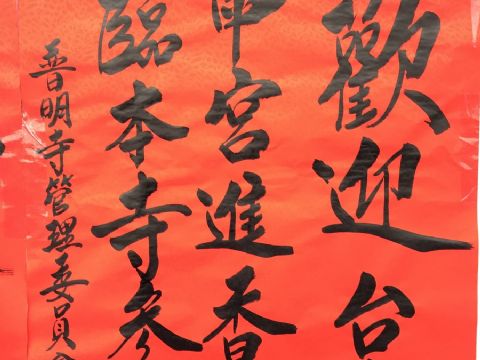 歡迎台
宮進香
臨本寺參
普明寺管理委員會